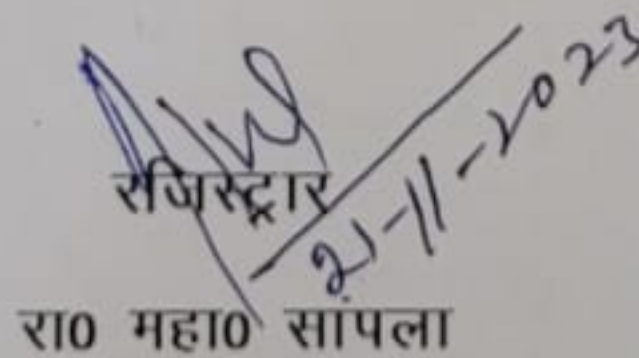 रजिस्ट्रार
21-11-2023
रा0 महा0 सांपला